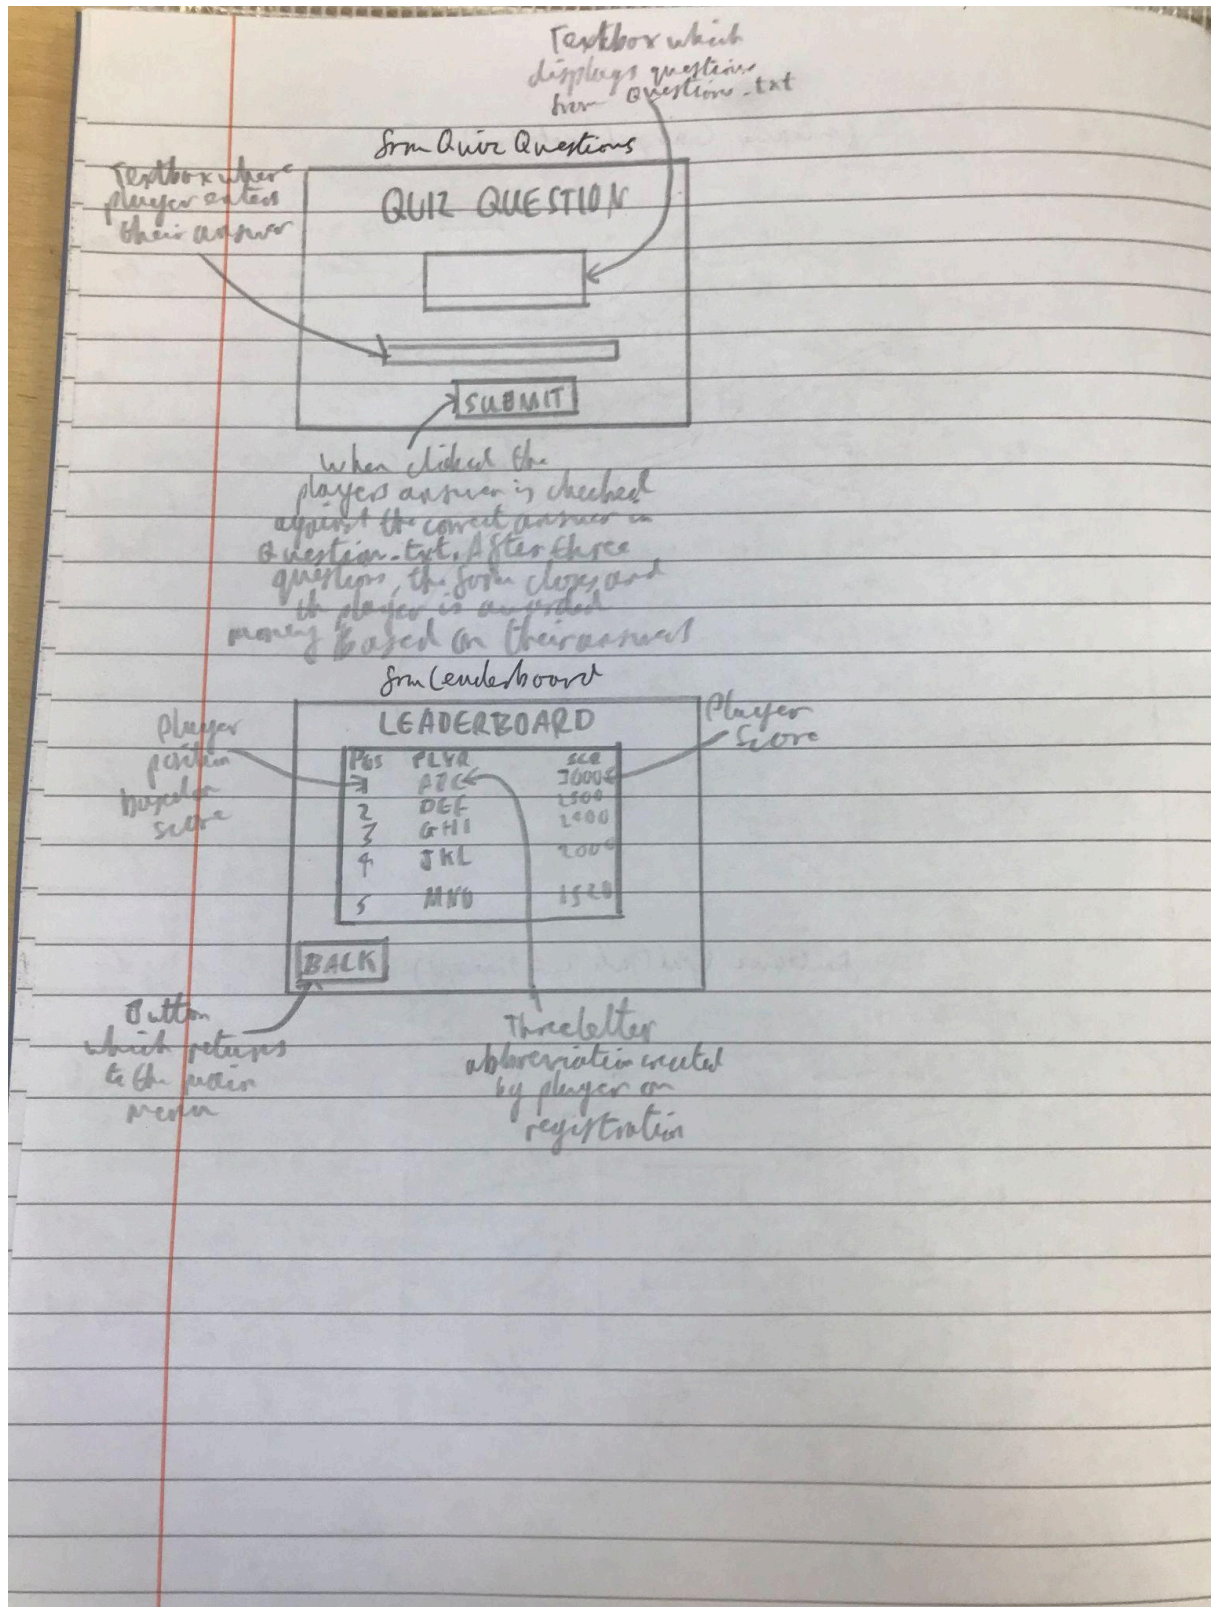 Textbox which
displays questions
from Questions.txt
frmQuizQuestions
Textbox where
player enters
their answer
QUIZ QUESTION
SUBMIT
When clicked the
players answer is checked
against the correct answer in
Question.txt. After three
questions, the form closes and
the player is awarded
money based on their answers
frmLeaderboard
LEADERBOARD
Player
position
based on
score
Player
score
POS PLYR SCR
1 3000
2 DEF 2500
3 GHI
4 JKL 2000
5 MNO 1520
BACK
Button
which returns
to the main
menu
Three letter
abbreviation created
by player on
registration